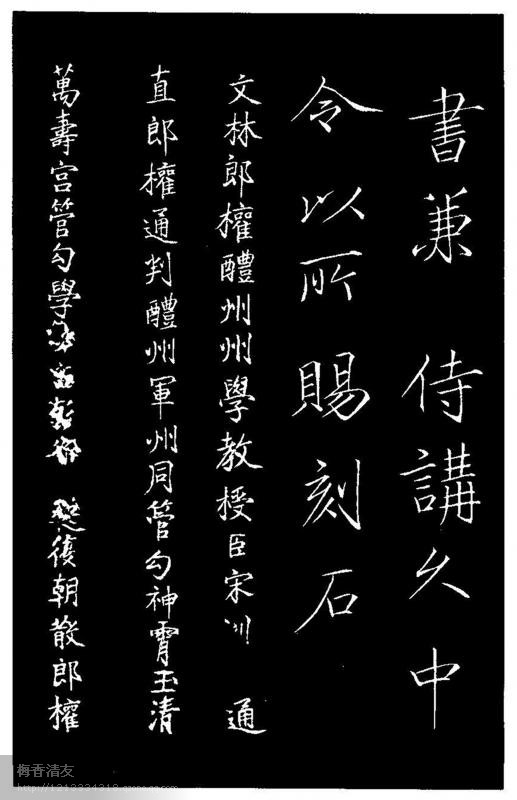 書兼 侍講久中
令以所賜刻石
文林郎權醴州州學教授臣宋 通
直郎權通判醴州軍州同管勾神霄玉清
萬壽宮管勾學 復朝散郎權
梅香清友